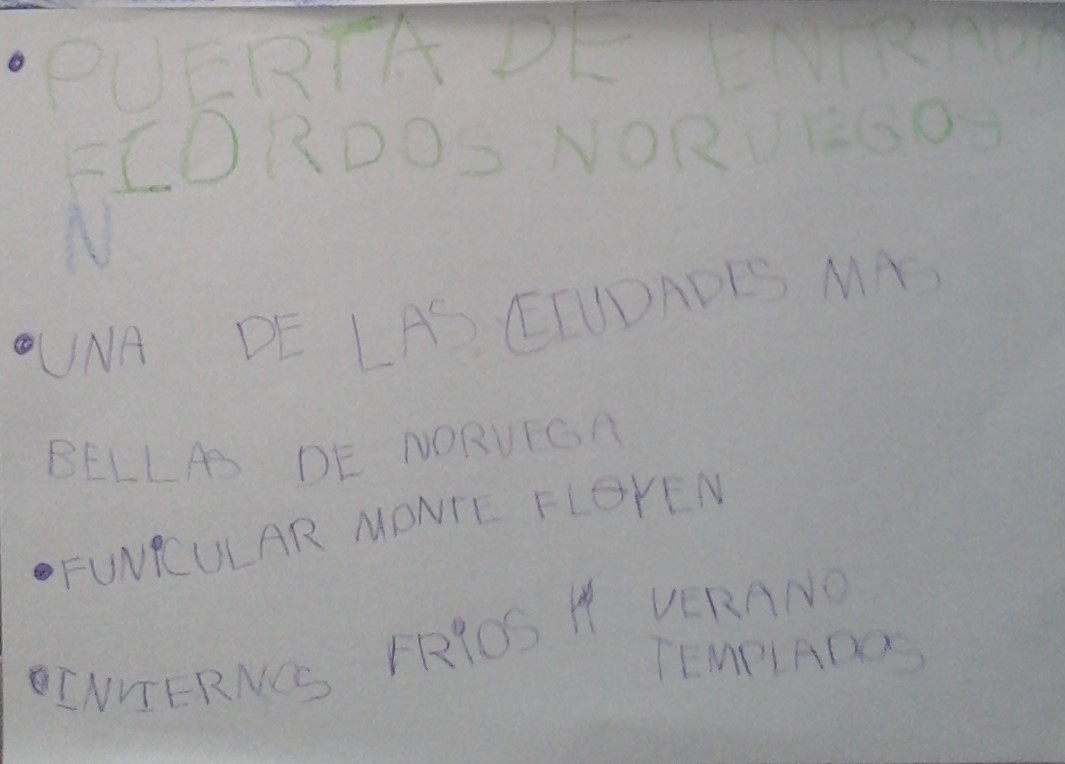 • PUERTA DE ENTRADA
FIORDOS NORUEGOS
N
• UNA DE LAS CIUDADES MAS
BELLAS DE NORUEGA
• FUNICULAR MONTE FLOYEN
• INVIERNOS FRIOS Y VERANO
TEMPLADOS